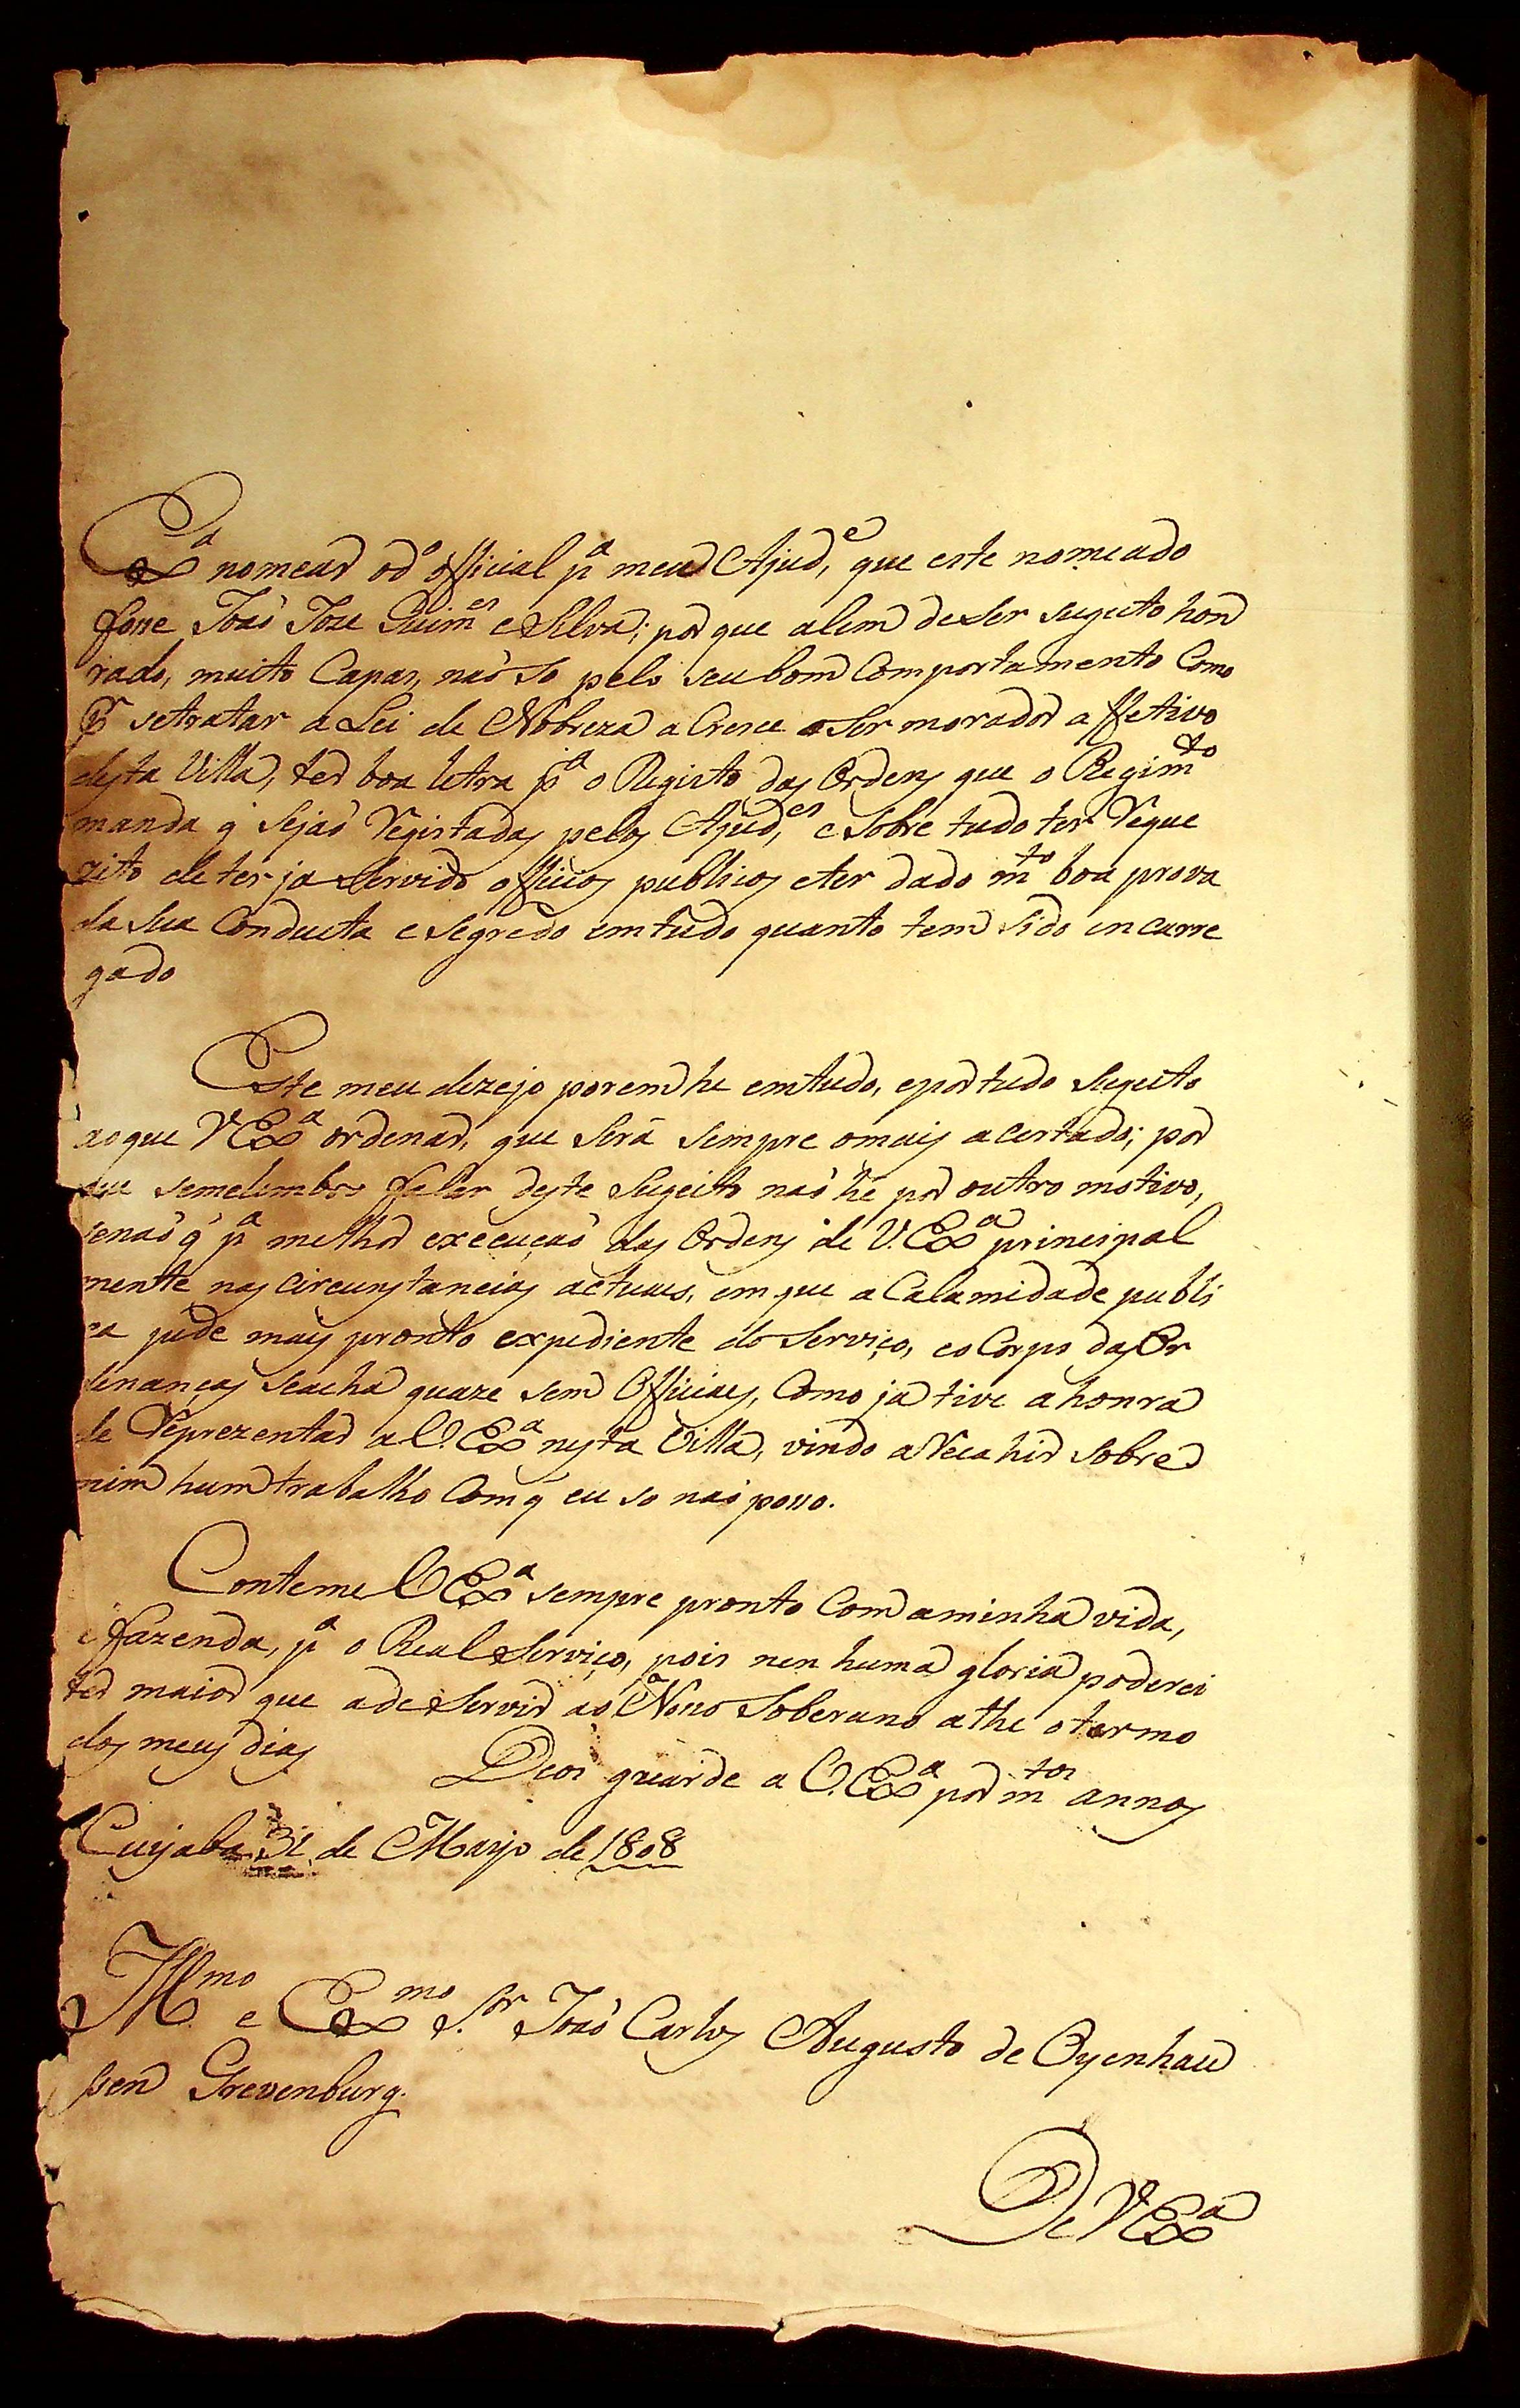 Exª nomear o dº official pª meu Ajudᵉ, que este nomeado
fosse João Joze Guimᵉˢ e Silva; por que alem de ser sugeito hon
rado, muito Capas, não so pelo seu bom Comportamento Como
pʳ se tratar a Lei de Nobreza a Cresce o ser morador affetivo
desta Villa, ter boa letra pª o Registo das Ordens que o Regimᵗᵒ
manda q̃ Sejaõ Registadas pelos Ajudᵉˢ, e Sobre tudo ter Reque
zito de ter ja Servido officios publicos e ter dado mᵗᵒ boa prova
da Sua Conducta e Segredo em tudo quanto tem Sido en carre
gado
Este meu dezejo porem he em tudo, e por tudo Sugeito
ao que V Exª ordenar, que Será Sempre o mais a certado; por
que se me lembro falar deste Sugeito não hé por outro motivo,
senaõ q̃ pª melhor execuçaõ das Ordens de V. Exª principal
mente nas circunstancias actuaes, em que a Calamidade publi
ca pede mais pronto expediente do Serviço, e o Corpo das Or
denanças se acha quaze sem Officiaes, Como ja tive a honra
de Reprezentar a V. Exª nesta Villa, vindo a Recahir Sobre
mim hum trabalho Com q̃ eu so naõ posso.
Conteme V Exª sempre pronto Com a minha vida,
e fazenda, pª o Real Serviço, pois nen huma gloria poderei
ter maior que a de Servir ao Nosso Soberano athe o termo
dos meus dias
Deos guarde a V. Exª por mᵗᵒˢ annos
Cuyaba 31 de Março de 1808
Illᵐᵒ e Exᵐᵒ S.ᵒʳ João Carlos Augusto de Oyenhau
sen Grevenburg.
De V Exª